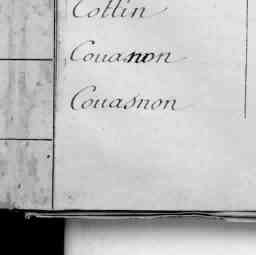 Cottin
Couanon
Couasnon